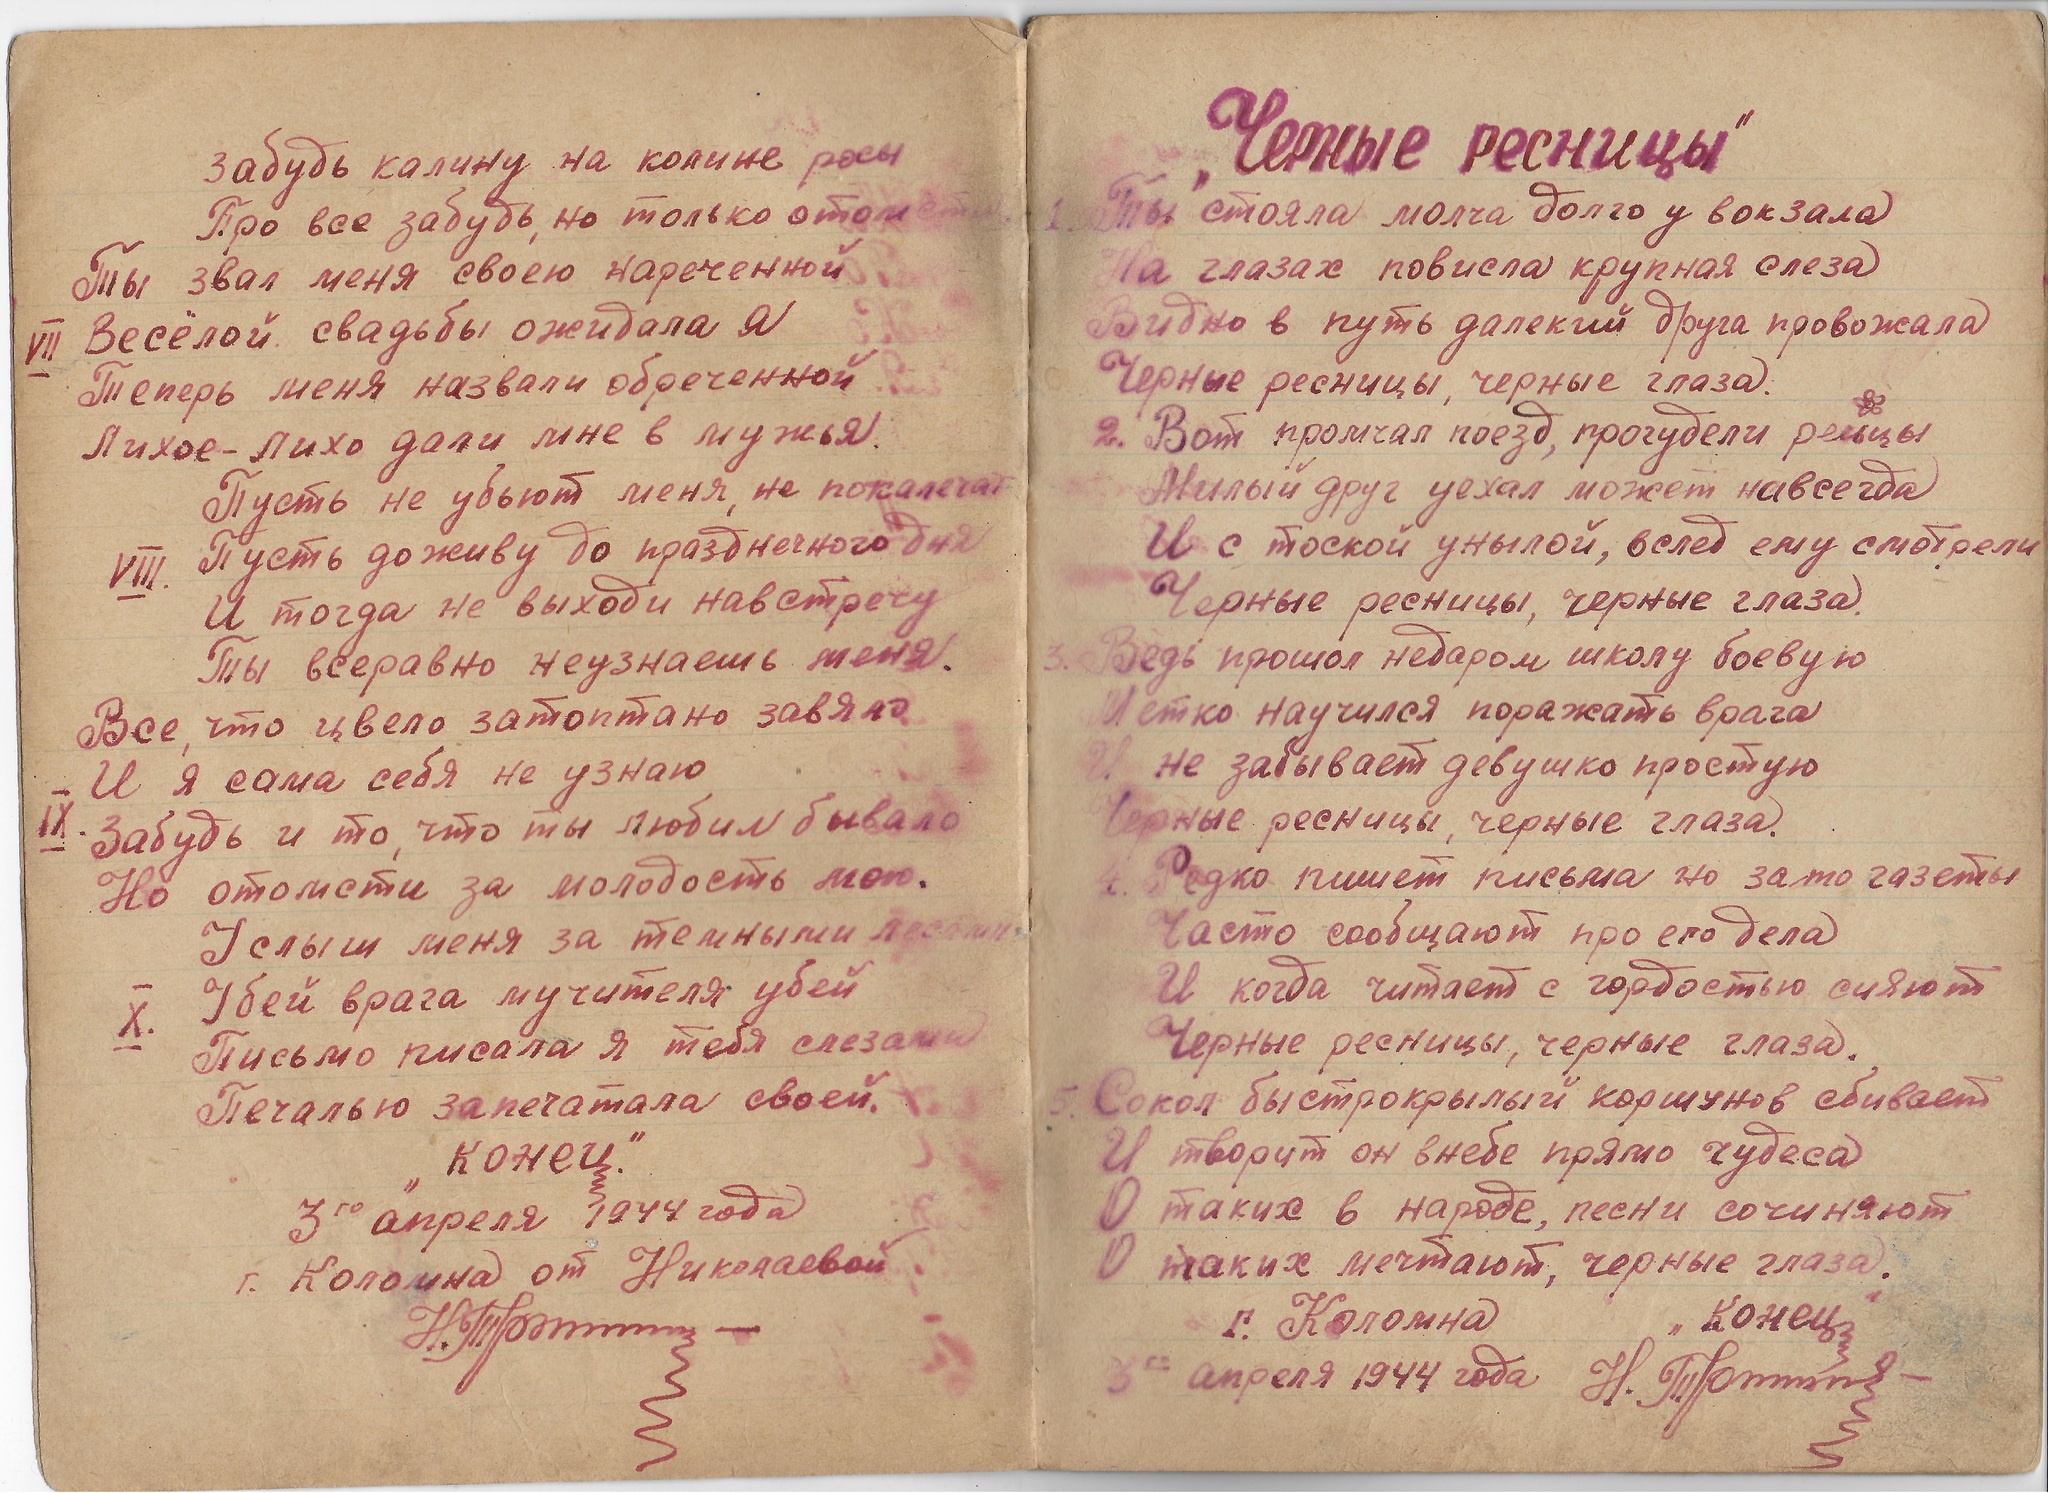 забудь калину на колине росы
Про все забудь, но только отомсти.
Ты звал меня своею нареченной
VII Весёлой свадьбы ожидала я
Теперь меня назвали обреченной
Лихое-Лихо дали мне в мужья.
Пусть не убьют меня, не покалечат
VIII. Пусть доживу до праздничного дня
И тогда не выходи навстречу
Ты всеравно неузнаешь меня.
Все, что цвело затоптано завяло
И я сама себя не узнаю
IX. Забудь и то, что ты любил бывало
Но отомсти за молодость мою.
Услыш меня за темными лесами
X. Убей врага мучителя убей
Письмо писала я тебя слезами
Печалью запечатала своей.
„конец."
3го апреля 1944 года
г. Коломна от Николаевой
„Черные ресницы"
1. Ты стояла молча долго у вокзала
На глазах повисла крупная слеза
Видно в путь далекий друга провожала
Черные ресницы, черные глаза.
2. Вот промчал поезд, прогудели рельцы
Милый друг уехал может навсегда
И с тоской унылой, вслед ему смотрели
Черные ресницы, черные глаза.
3. Ведь прошол недаром школу боевую
Метко научился поражать врага
И не забывает девушко простую
Черные ресницы, черные глаза.
4. Редко пишет письма но зато газеты
Часто сообщают про его дела
И когда читает с гордостью сияют
Черные ресницы, черные глаза.
5. Сокол быстрокрылый коршунов сбивает
И творит он внебе прямо чудеса
О таких в народе, песни сочиняют
О таких мечтают, черные глаза.
г. Коломна „конец"
3го апреля 1944 года Н.